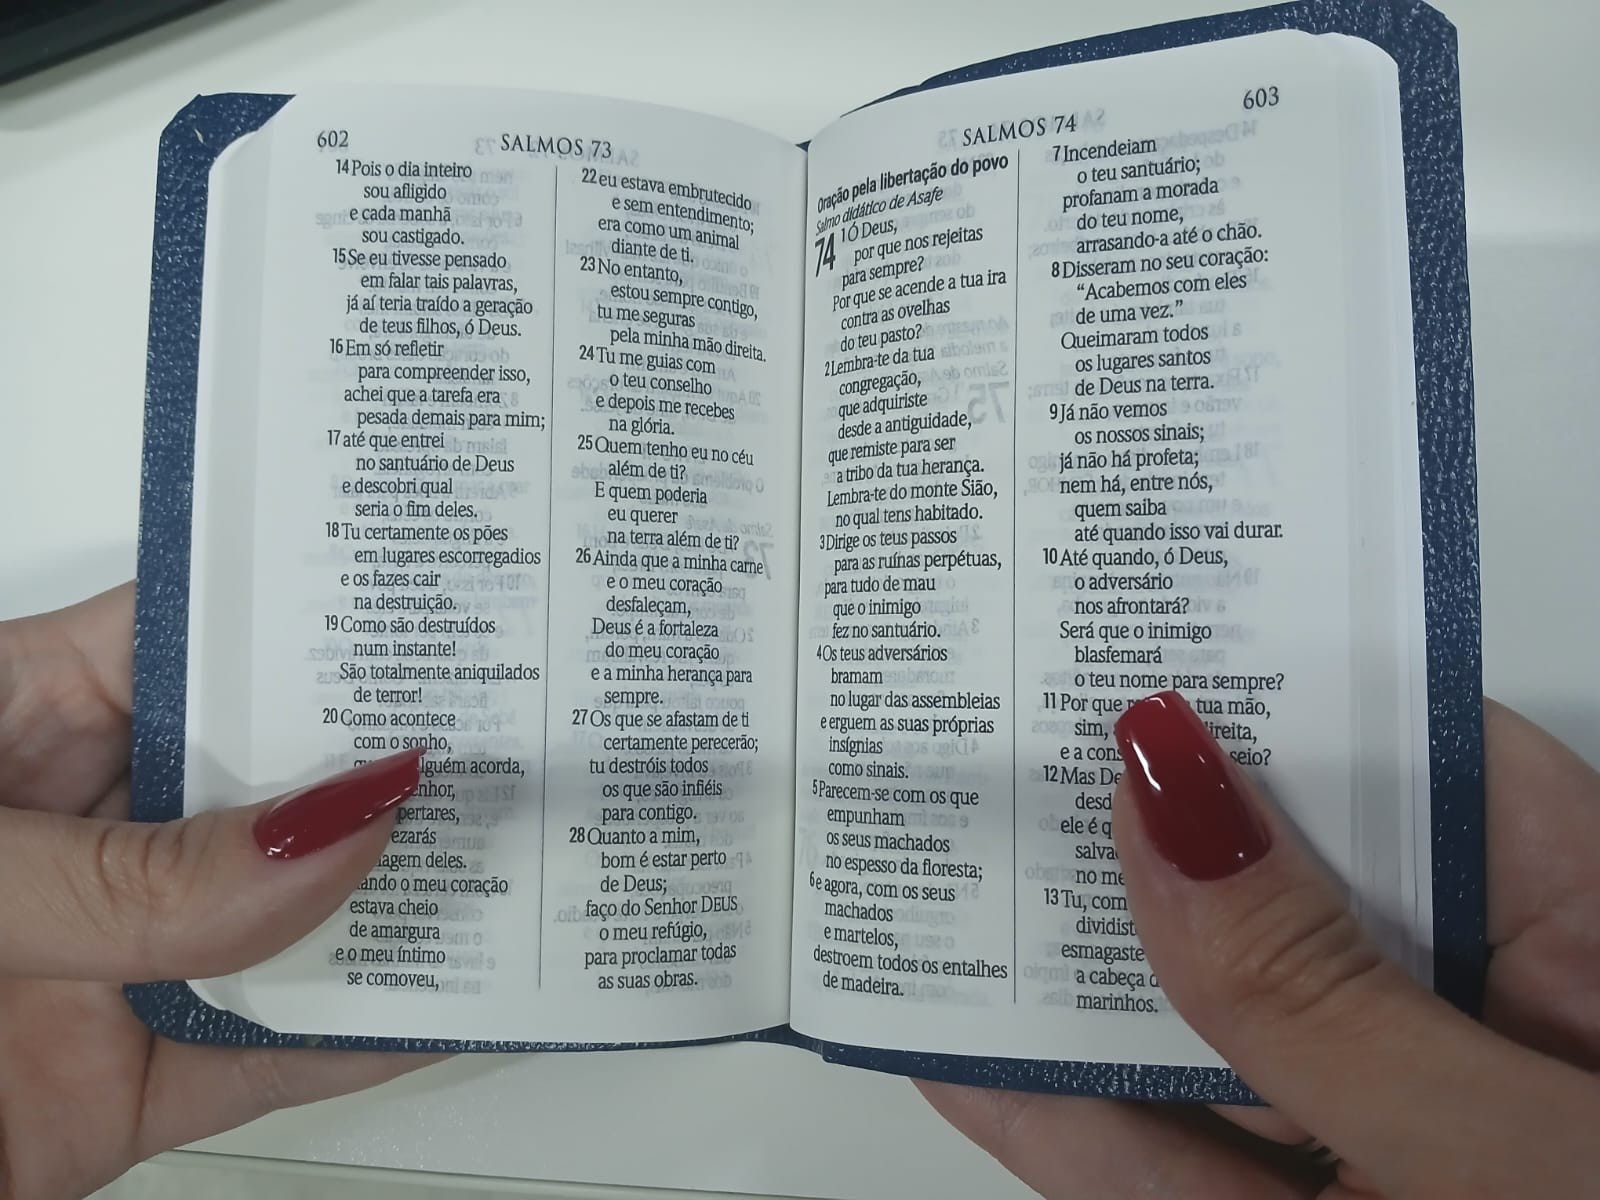 602
SALMOS 73
14 Pois o dia inteiro
sou afligido
e cada manhã
sou castigado.
15 Se eu tivesse pensado
em falar tais palavras,
já aí teria traído a geração
de teus filhos, ó Deus.
16 Em só refletir
para compreender isso,
achei que a tarefa era
pesada demais para mim;
17 até que entrei
no santuário de Deus
e descobri qual
seria o fim deles.
18 Tu certamente os pões
em lugares escorregadios
e os fazes cair
na destruição.
19 Como são destruídos
num instante!
São totalmente aniquilados
de terror!
20 Como acontece
com o sonho,
acorda,
deles.
o meu coração
estava cheio
de amargura
e o meu íntimo
se comoveu,
22 eu estava embrutecido
e sem entendimento;
era como um animal
diante de ti.
23 No entanto,
estou sempre contigo,
tu me seguras
pela minha mão direita.
24 Tu me guias com
o teu conselho
e depois me recebes
na glória.
25 Quem tenho eu no céu
além de ti?
E quem poderia
eu querer
na terra além de ti?
26 Ainda que a minha carne
e o meu coração
desfaleçam,
Deus é a fortaleza
do meu coração
e a minha herança para
sempre.
27 Os que se afastam de ti
certamente perecerão;
tu destróis todos
os que são infiéis
para contigo.
28 Quanto a mim,
bom é estar perto
de Deus;
faço do Senhor DEUS
o meu refúgio,
para proclamar todas
as suas obras.
SALMOS 74
603
Oração pela libertação do povo
Salmo didático de Asafe
74 1 Ó Deus,
por que nos rejeitas
para sempre?
Por que se acende a tua ira
contra as ovelhas
do teu pasto?
2 Lembra-te da tua
congregação,
que adquiriste
desde a antiguidade,
que remiste para ser
a tribo da tua herança.
Lembra-te do monte Sião,
no qual tens habitado.
3 Dirige os teus passos
para as ruínas perpétuas,
para tudo de mau
que o inimigo
fez no santuário.
4 Os teus adversários
bramam
no lugar das assembleias
e erguem as suas próprias
insígnias
como sinais.
5 Parecem-se com os que
empunham
os seus machados
no espesso da floresta;
6 e agora, com os seus
machados
e martelos,
destroem todos os entalhes
de madeira.
7 Incendeiam
o teu santuário;
profanam a morada
do teu nome,
arrasando-a até o chão.
8 Disseram no seu coração:
“Acabemos com eles
de uma vez.”
Queimaram todos
os lugares santos
de Deus na terra.
9 Já não vemos
os nossos sinais;
já não há profeta;
nem há, entre nós,
quem saiba
até quando isso vai durar.
10 Até quando, ó Deus,
o adversário
nos afrontará?
Será que o inimigo
blasfemará
o teu nome para sempre?
11 Por que tua mão,
sim,
e a seio?
12 Mas
ele é
no
13 Tu,
esmagaste
a cabeça
marinhos.